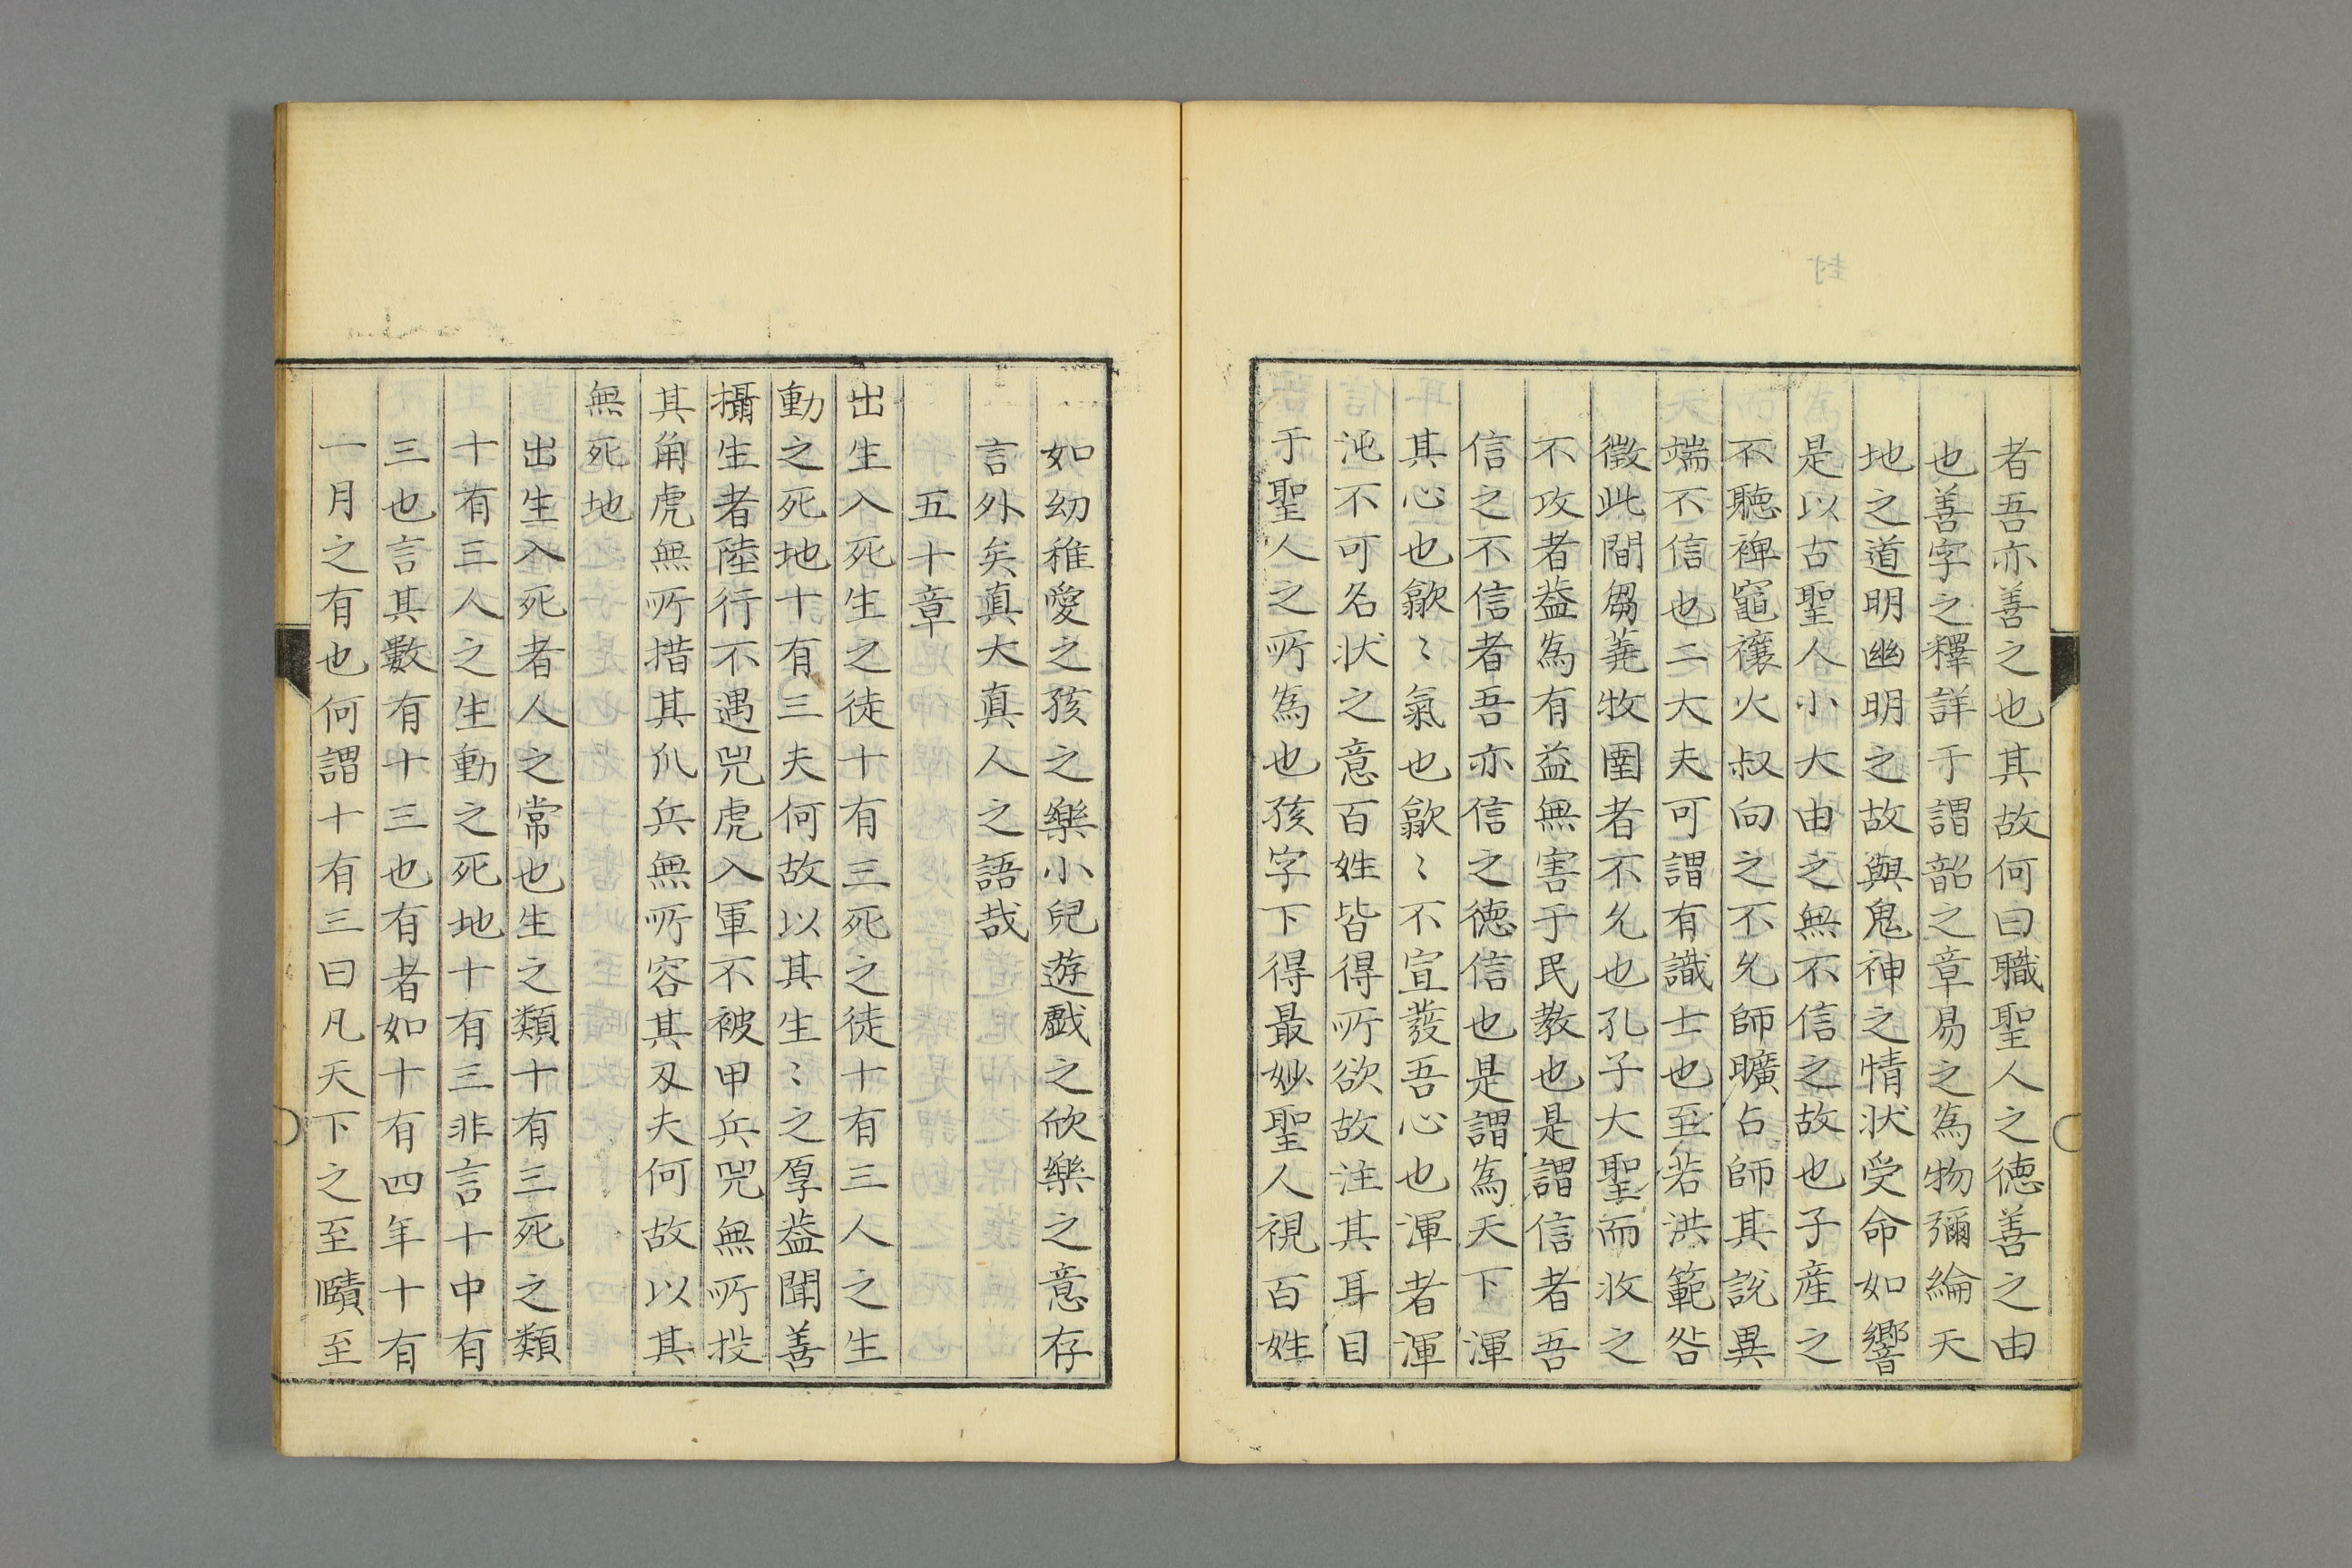 者吾亦善之也其故何曰職聖人之德善之由
也善字之釋詳于謂韶之章易之為物彌綸天
地之道明幽明之故與鬼神之情狀受命如響
是以古聖人小大由之無不信之故也子產之
不聽裨竈禳火叔向之不允師曠占師其說異
端不信也二大夫可謂有識士也至若洪範咎
徵此間芻蕘牧圉者不允也孔子大聖而收之
不攻者益為有益無害于民教也是謂信者吾
信之不信者吾亦信之德信也是謂為天下渾
其心也歙〻氣也歙〻不宣發吾心也渾者渾
沌不可名状之意百姓皆得所欲故注其耳目
于聖人之所為也孩字下得最妙聖人視百姓
如幼稚愛之孩之樂小兒遊戲之欣樂之意存
言外矣真大真人之語哉
五十章
出生入死生之徒十有三死之徒十有三人之生
動之死地十有三夫何故以其生〻之厚益聞善
攝生者陸行不遇兕虎入軍不被甲兵兕無所投
其角虎無所措其爪兵無所容其刃夫何故以其
無死地
出生入死者人之常也生之類十有三死之類
十有三人之生動之死地十有三非言十中有
三也言其數有十三也有者如十有四年十有
一月之有也何謂十有三曰凡天下之至賾至